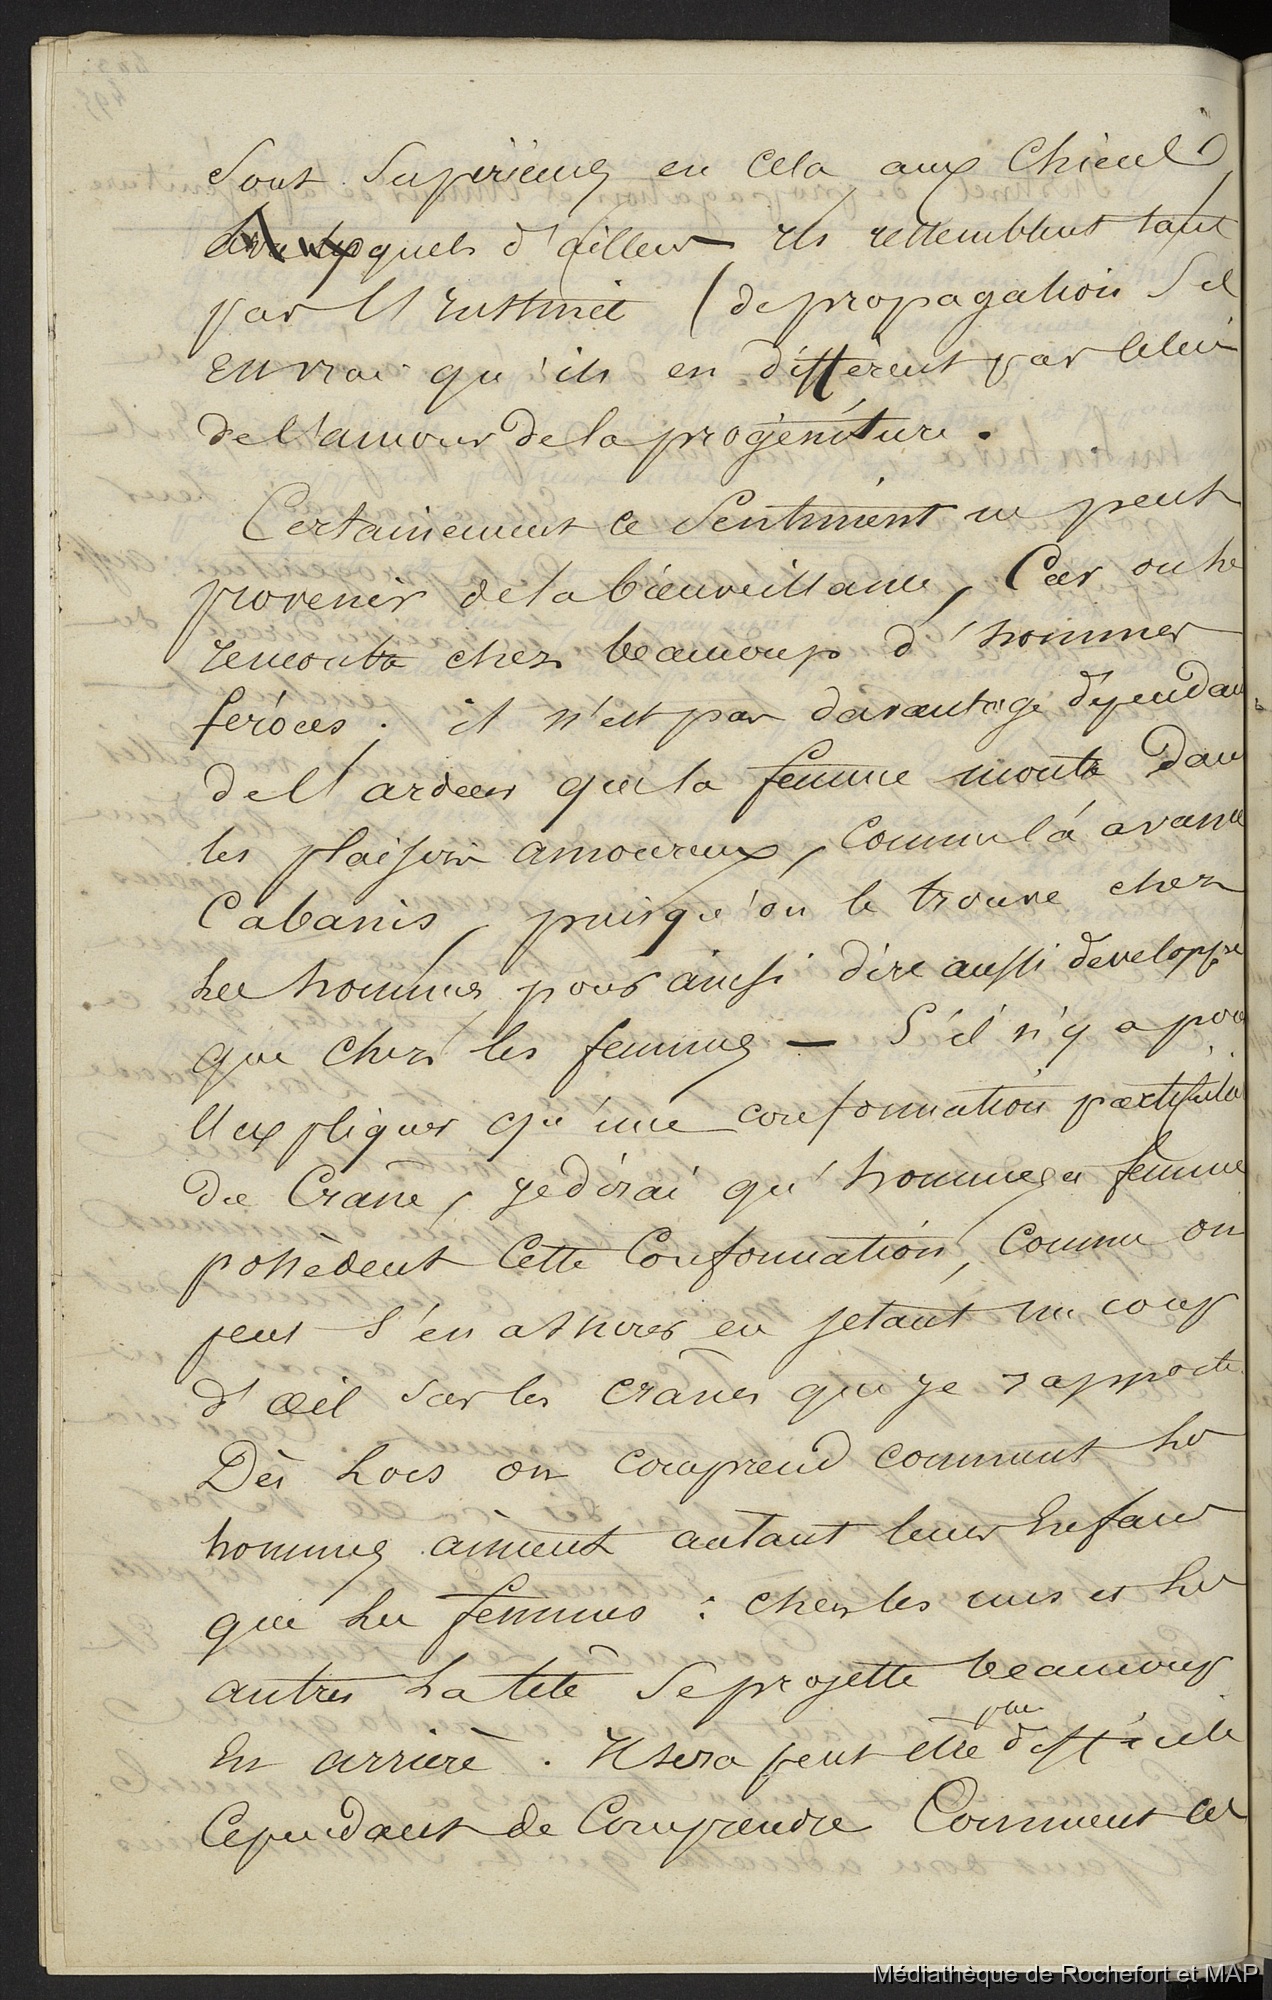 sont supérieurs en cela aux chiens
auxquels d'ailleurs ils ressemblent tant
par l'instinct de propagation s'il
est vrai qu'ils en diffèrent par celui
de l'amour de la progéniture.
Certainement ce sentiment ne peut
provenir de la bienveillance, Car on le
rencontre chez beaucoup d'hommes
féroces. il n'est pas davantage dépendant
de l'ardeur que la femme montre dans
les plaisirs amoureux, comme l'a avancé
Cabanis, puisqu'on le trouve chez
les hommes pour ainsi dire aussi développé
que chez les femmes — S'il n'y a pour
l'expliquer qu'une conformation particulière
de Crâne, je dirai qu'hommes et femmes
possèdent cette conformation, comme on
peut s'en assurer en jetant un coup
d'œil sur les crânes que je rapporte
Dès lors on comprend comment les
hommes aiment autant leurs Enfans
que les femmes : chez les uns et les
autres la tête se projette beaucoup
En arrière. Il sera peut être plus difficile
Cependant de Comprendre Comment ce
Médiathèque de Rochefort et MAP